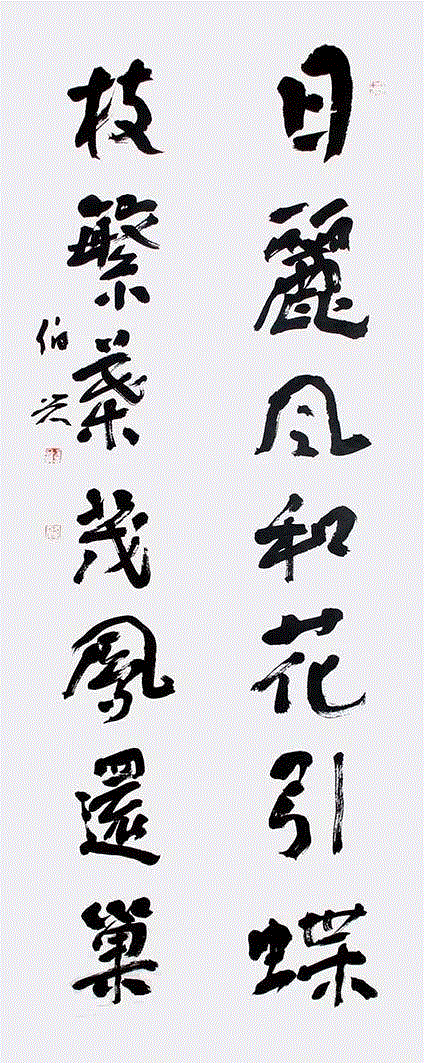 日麗風和花引蝶
枝繁葉茂鳳還巢
伯興